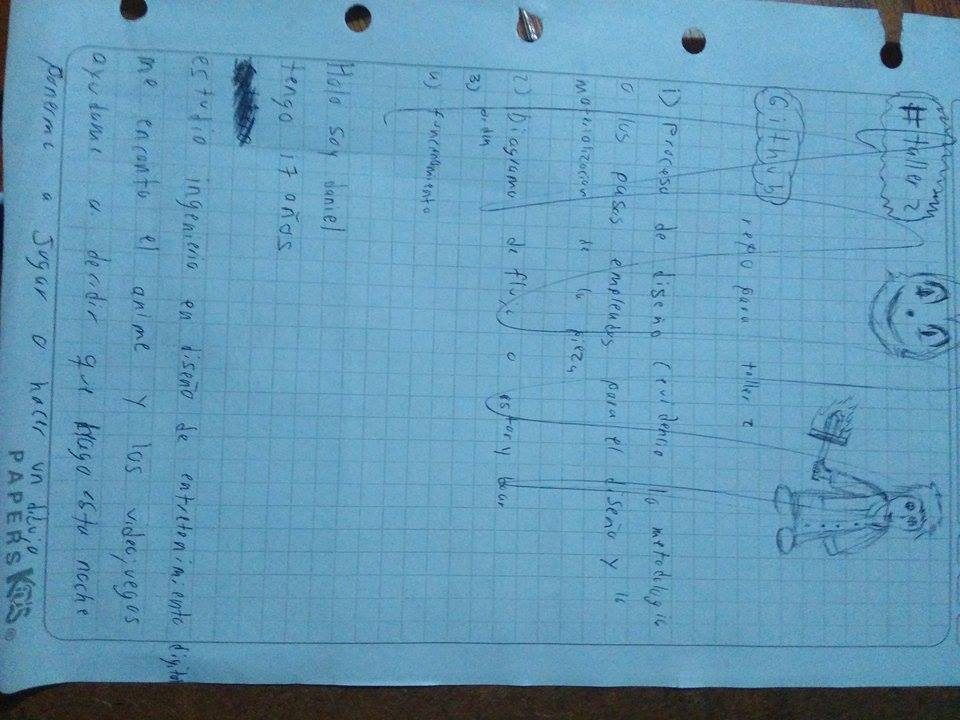 #taller 2
Github
repo para taller 2
1) Proceso de diseño (evidencia la metodologia
o los pasos empleados para el diseño y la
materializacion de la pieza
2) Diagrama de flujo o estory boar
3) orden
4) funcionamiento
Hola soy daniel
tengo 17 años
estudio ingenieria en diseño de entretenimiento digital
me encanta el anime y los videojuegos
ayudame a decidir que hago esta noche
ponerme a Jugar o hacer un dibujo
PAPERS KOS